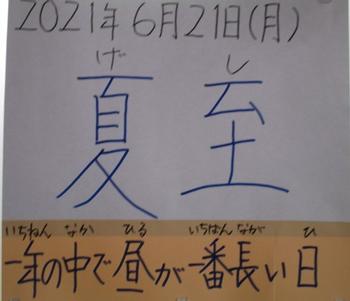 2021年6月21日(月)
げし
夏至
いちねん なか ひる いちばん なが ひ
一年の中で昼が一番長い日